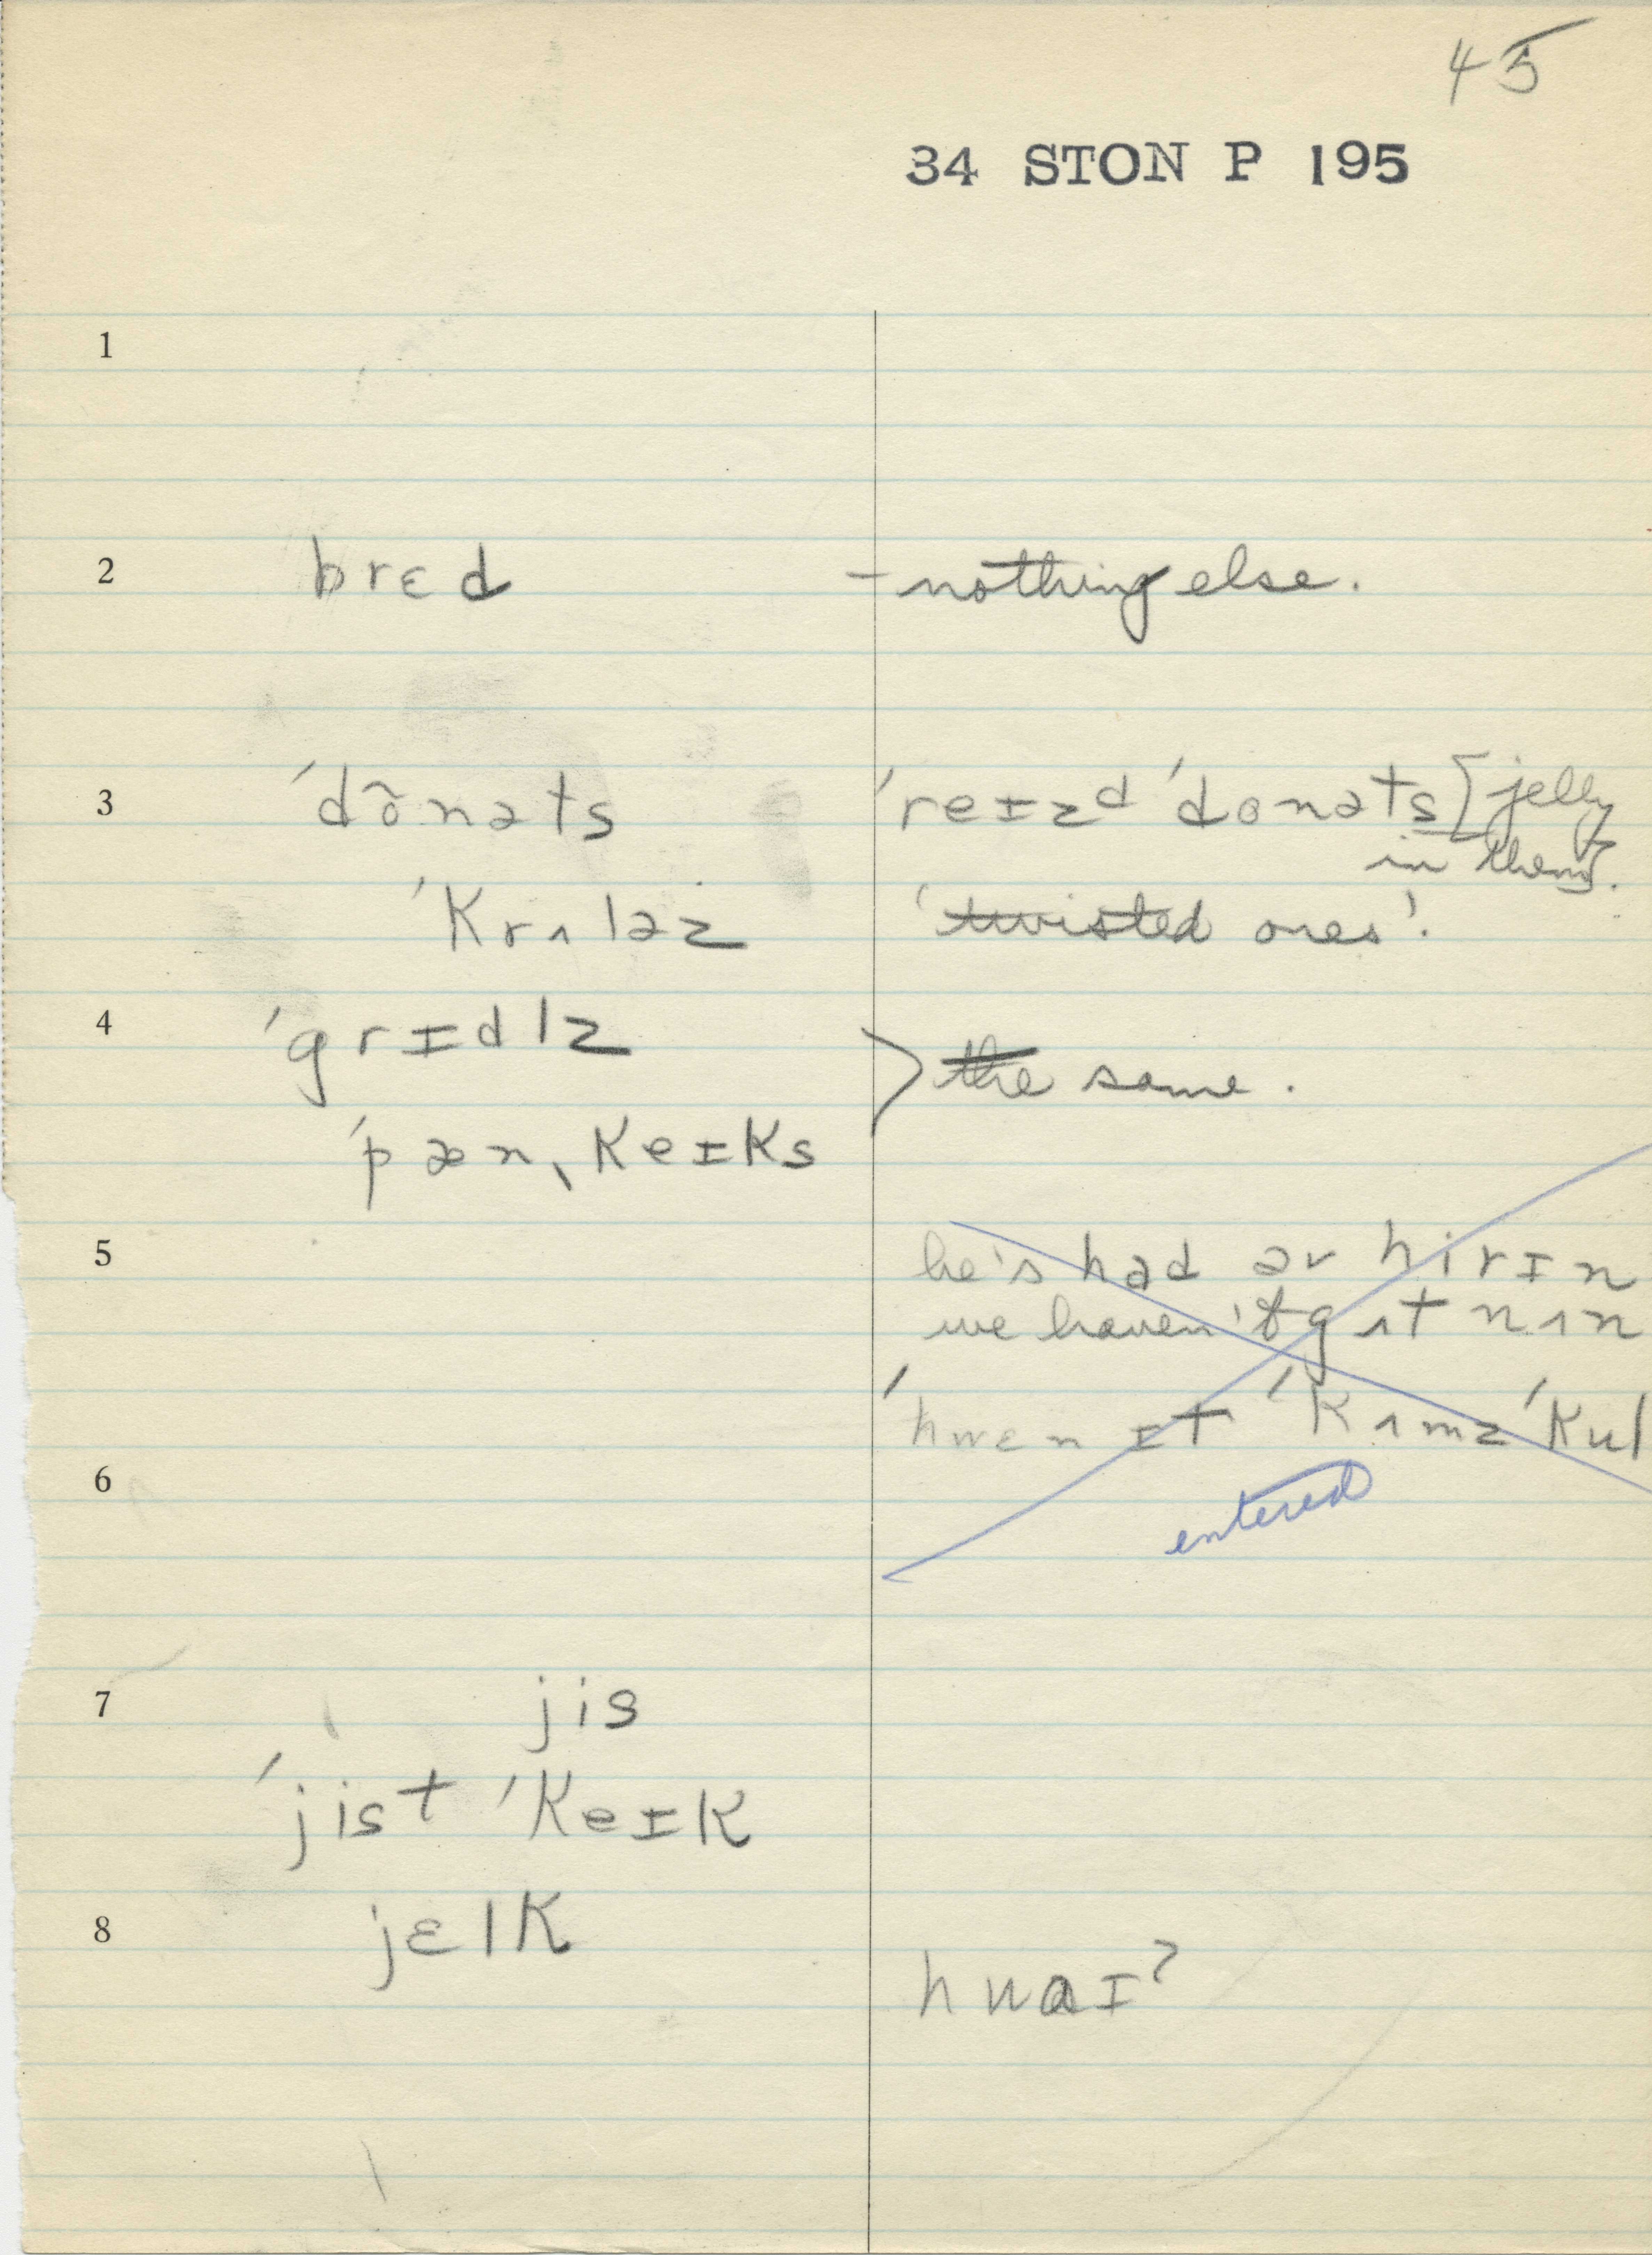 45
34 STON P 195
1
2 brɛd - nothing else.
3 ˈdõnəts ˈreɪzd ˈdonəts [jelly
in them].
ˈkrʌləz 'twisted ones'.
4 ˈgrɪdlz
> the same.
ˈpænˌkeɪks
5 he's had ər hirɪn
we haven't gʌt nʌn
ˈhwɛn ɪt ˈkʌmz ˈkul
6
entered
7 jis
ˈjist ˈkeɪk
8 jɛlk
hwaɪ?